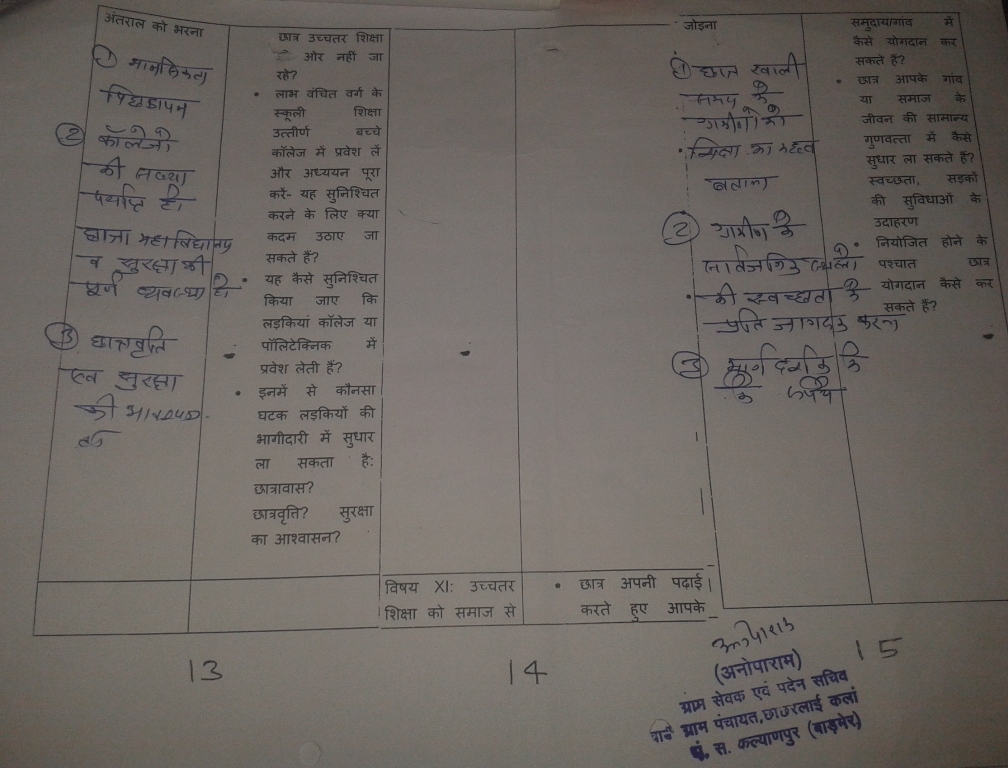 अंतराल को भरना
① मानसिकता
पिछडापन
② कॉलेजो
की संख्या
पर्याप्त है।
छात्रा महाविद्यालय
व सुरक्षा की
पूर्ण व्यवस्था हो
③ छात्रवृति
एव सुरक्षा
की आवश्यक-
ता
छात्र उच्चतर शिक्षा
की ओर नहीं जा
रहे?
• लाभ वंचित वर्ग के
स्कूली शिक्षा
उत्तीर्ण बच्चे
कॉलेज में प्रवेश लें
और अध्ययन पूरा
करें- यह सुनिश्चित
करने के लिए क्या
कदम उठाए जा
सकते हैं?
• यह कैसे सुनिश्चित
किया जाए कि
लड़कियां कॉलेज या
पॉलिटेक्निक में
प्रवेश लेती हैं?
• इनमें से कौनसा
घटक लड़कियों की
भागीदारी में सुधार
ला सकता है:
छात्रावास?
छात्रवृति? सुरक्षा
का आश्वासन?
13
विषय XI: उच्चतर
शिक्षा को समाज से
• छात्र अपनी पढ़ाई
करते हुए आपके
14
जोड़ना
① छात्र खाली
समय में
ग्रामीणों को
शिक्षा का महत्व
बताना
② ग्रामीण के
सार्वजनिक स्थलो
की स्वच्छता के
प्रति जागरूक करना
③ मार्गदर्शक के
रूप में
समुदाय/गांव में
कैसे योगदान कर
सकते हैं?
• छात्र आपके गांव
या समाज के
जीवन की सामान्य
गुणवत्ता में कैसे
सुधार ला सकते हैं?
स्वच्छता, सड़कों
की सुविधाओं के
उदाहरण
• नियोजित होने के
पश्चात छात्र
योगदान कैसे कर
सकते हैं?
15
अनोपाराम
(अनोपाराम)
ग्राम सेवक एवं पदेन सचिव
ग्राम पंचायत, छाछरलाई कलां
पं. स. कल्याणपुर (बाड़मेर)